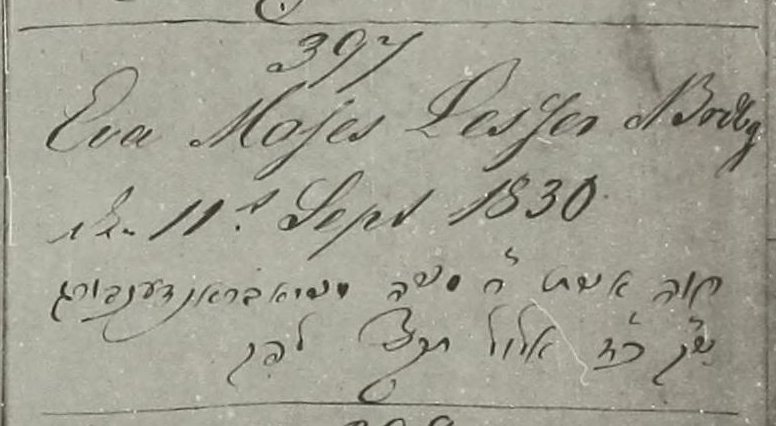 397
Eva Moses Lesser NBrdbg
11t Sept 1830
חוה אשת ר' משה
ש"ק כ"ג אלול תק"צ לפק